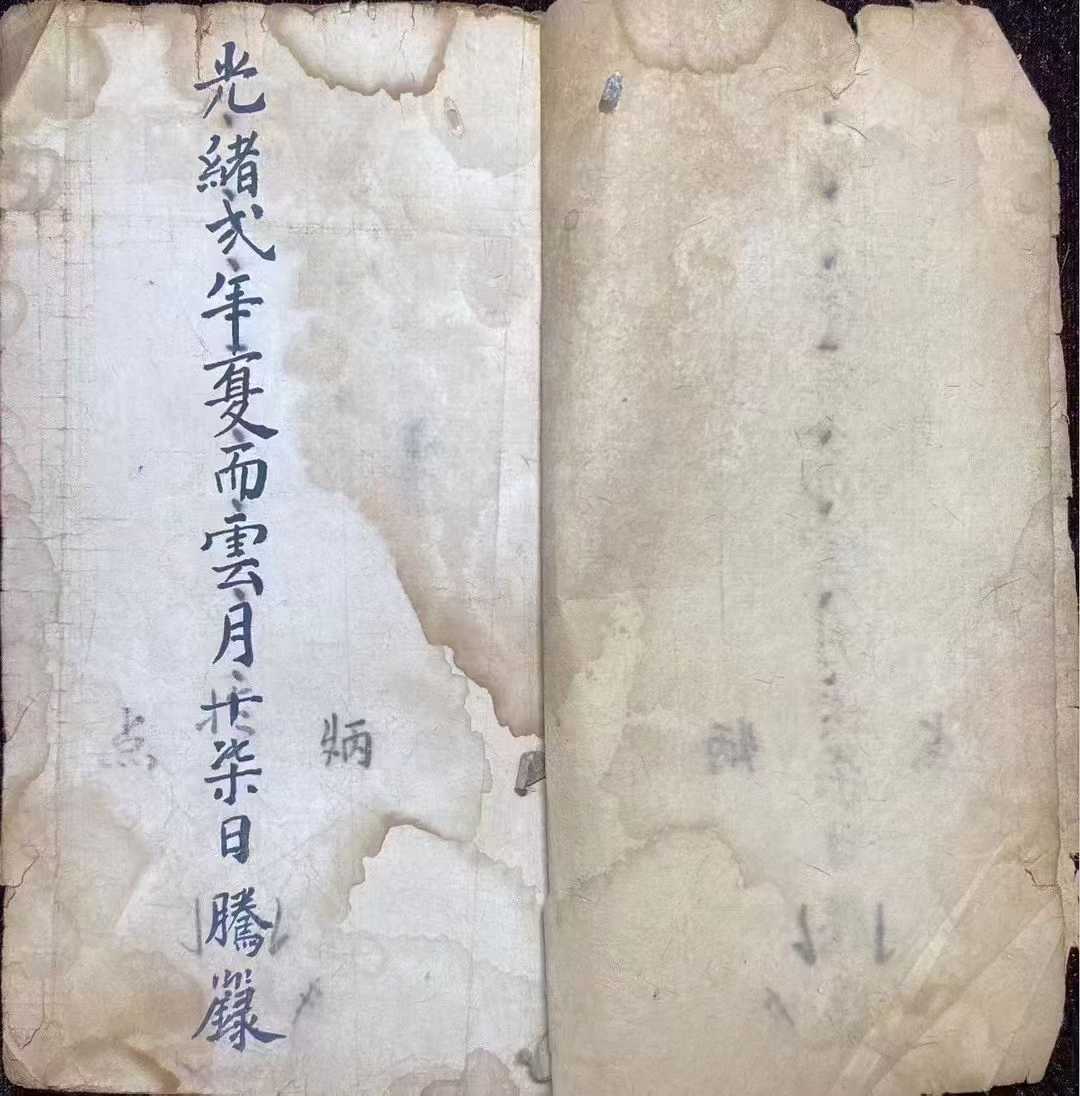 光緒弍年夏而雲月廿柒日騰錄
炳
点